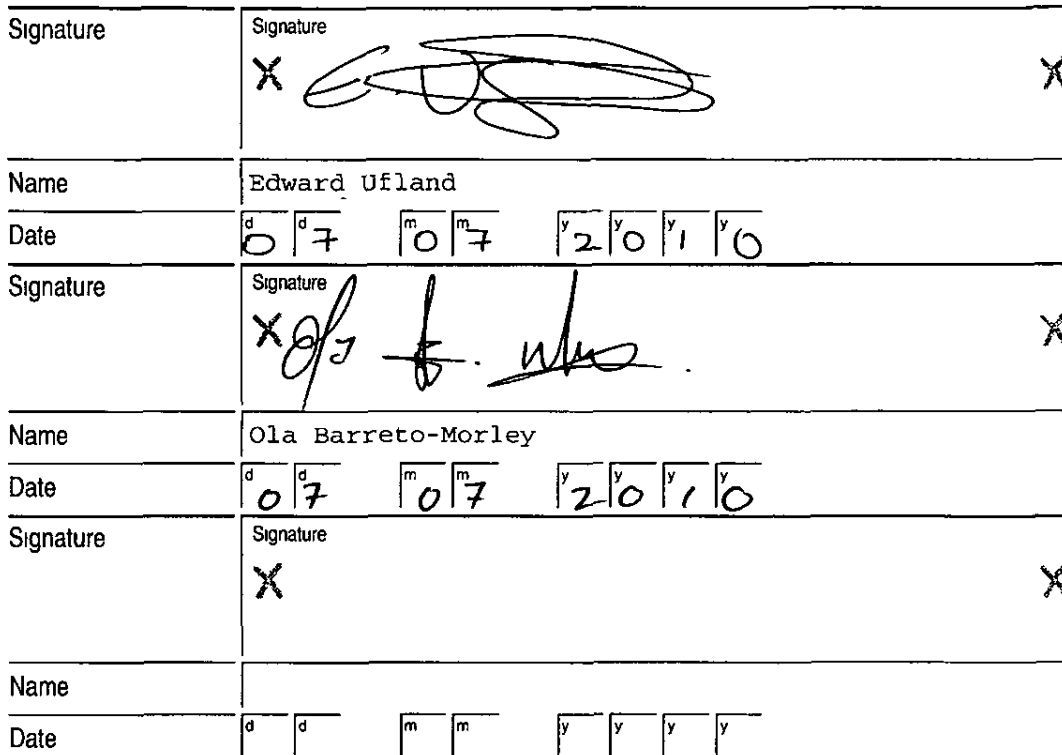 Signature Signature
X X
Name Edward Ufland
Date d0 d7 m0 m7 y2 y0 y1 y0
Signature Signature
X X
Name Ola Barreto-Morley
Date d0 d7 m0 m7 y2 y0 y1 y0
Signature Signature
X X
Name
Date d d m m y y y y